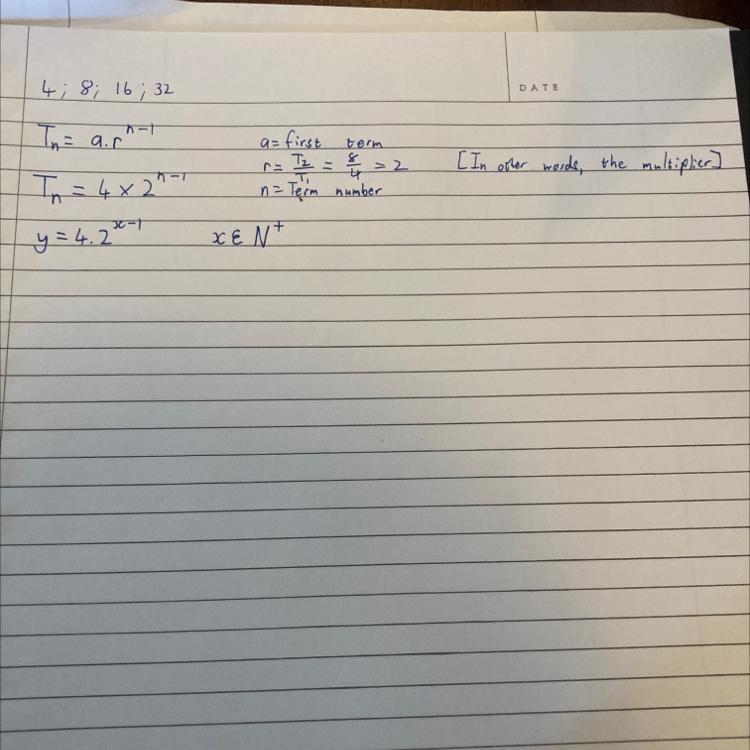 DATE
4; 8; 16; 32
Tₙ = a.rⁿ⁻¹ a = first term
r = T₂/T₁ = 8/4 = 2 [In other words, the multiplier]
Tₙ = 4 × 2ⁿ⁻¹ n = Term number
y = 4.2ˣ⁻¹ x ∈ N⁺